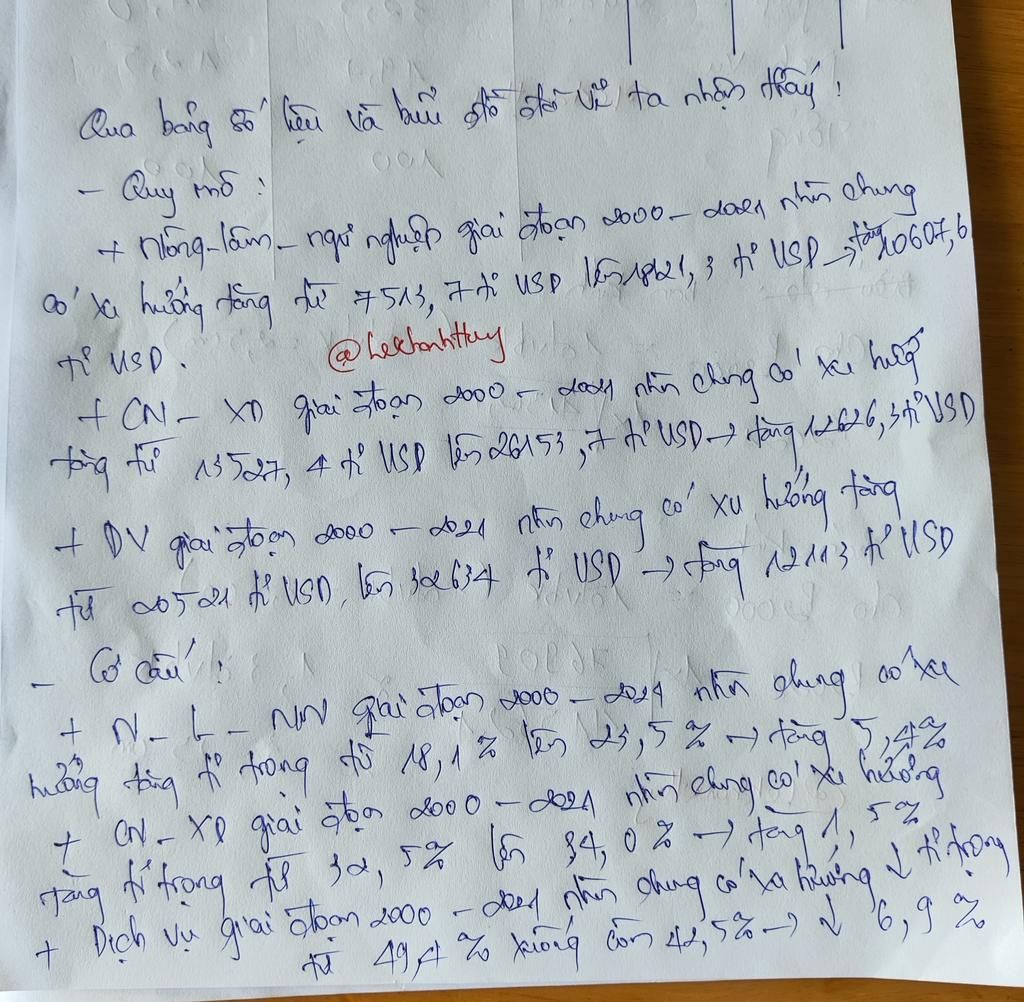 Qua bảng số liệu và biểu đồ đã vẽ ta nhận thấy :
- Quy mô :
+ Nông-lâm-ngư nghiệp giai đoạn 2000-2021 nhìn chung
có xu hướng tăng từ 7513,7 tỉ USD lên 18121,3 tỉ USD → tăng 10607,6
tỉ USD.
@LekhanhHuy
+ CN - XD giai đoạn 2000 - 2021 nhìn chung có xu hướng
tăng từ 13527,4 tỉ USD lên 26153,7 tỉ USD → tăng 12626,3 tỉ USD
+ DV giai đoạn 2000 - 2021 nhìn chung có xu hướng tăng
từ 20521 tỉ USD lên 32634 tỉ USD → tăng 12113 tỉ USD
- Cơ cấu :
+ N - L - NN giai đoạn 2000 - 2021 nhìn chung có xu
hướng tăng tỉ trọng từ 18,1% lên 23,5% → tăng 5,4%
+ CN - XD giai đoạn 2000 - 2021 nhìn chung có xu hướng
tăng tỉ trọng từ 32,5% lên 34,0% → tăng 1,5%
+ Dịch vụ giai đoạn 2000 - 2021 nhìn chung có xu hướng ↓ tỉ trọng
từ 49,4% xuống còn 42,5% → ↓ 6,9%